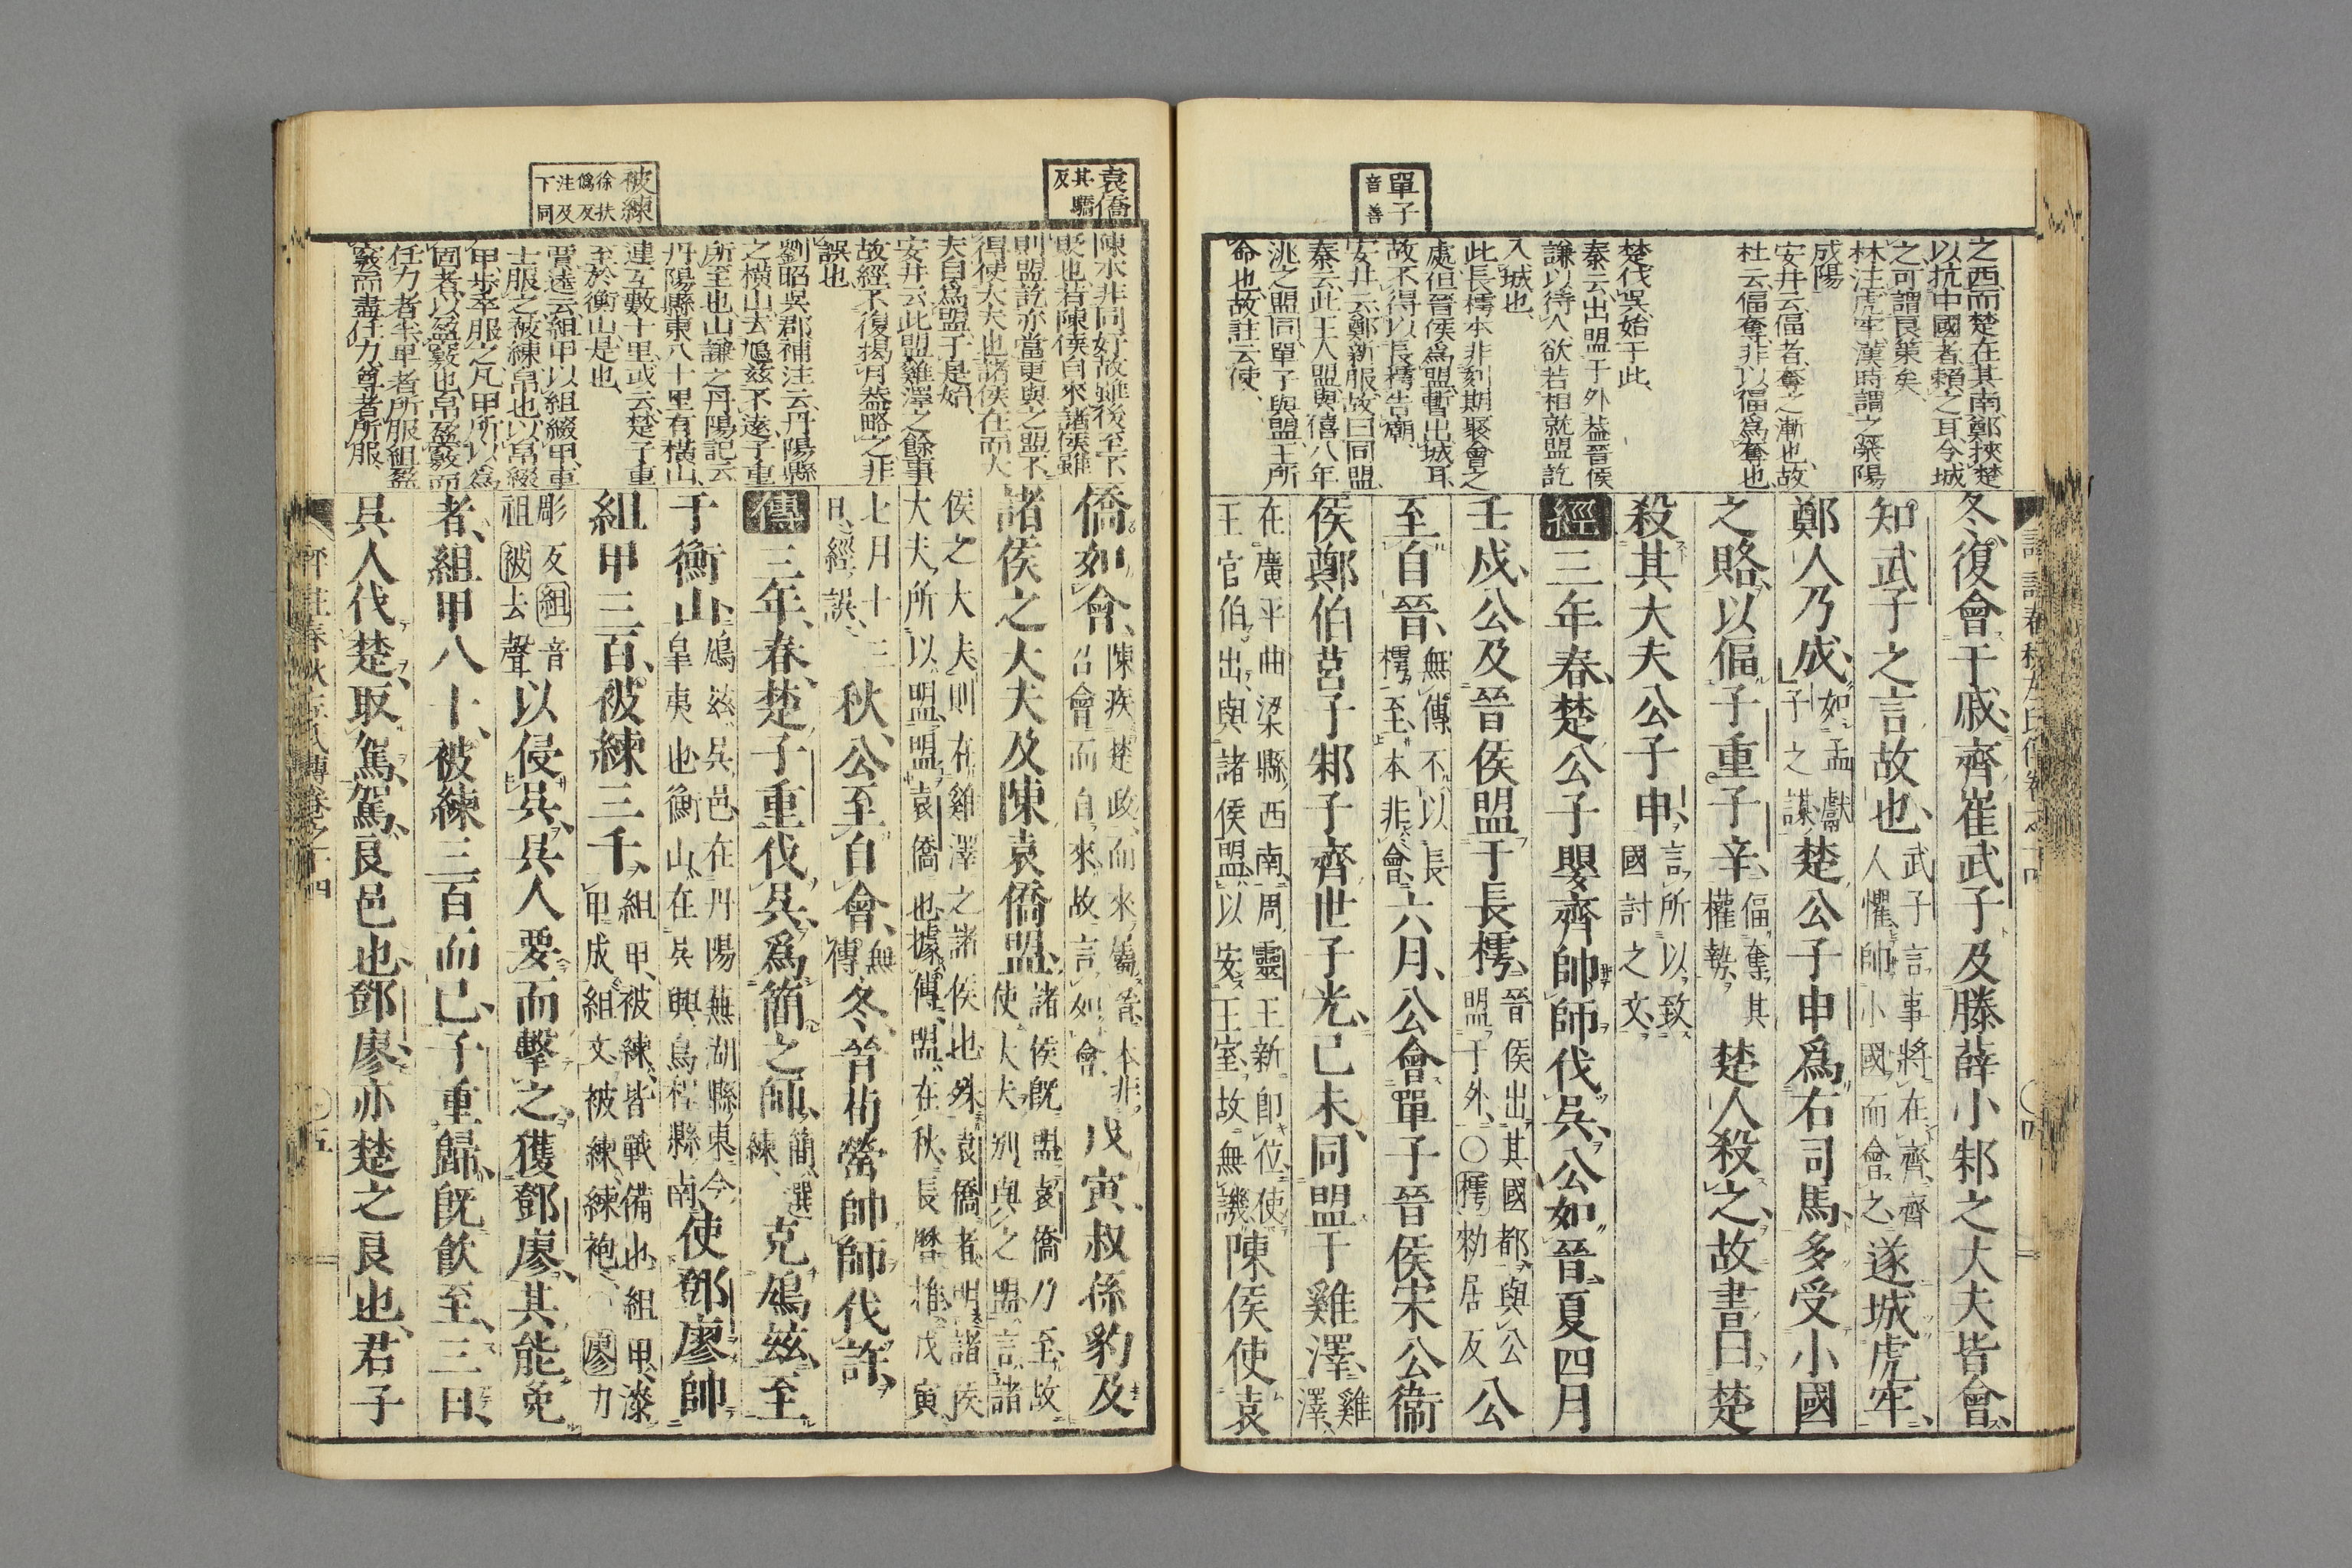 單子
音善
之西而楚在其南鄭挾楚
以抗中國者賴之耳今城
之可謂良策矣
林注虎牢漢時謂之滎陽
成陽
安井云偪者奪之漸也故
杜云偪奪非以偪爲奪也
楚伐吳始于此
秦云出盟于外蓋晉侯
謙以待人欲若相就盟訖
入城也
此長樗本非刻期聚會之
處但晉侯爲盟暫出城耳
故不得以長樗告廟
安井云鄭新服故曰同盟
秦云此王人盟與僖八年
洮之盟同單子與盟王所
命也故註云使
冬復會于戚齊崔武子及滕薛小邾之大夫皆會
知武子之言故也武子言事將在齊齊人懼帥小國而會之遂城虎牢
鄭人乃成如孟獻子之謀楚公子申爲右司馬多受小國
之賂以偪子重子辛偪奪其權勢楚人殺之故書曰楚
殺其大夫公子申言所以致國討之文
經三年春楚公子嬰齊帥師伐吳公如晉夏四月
壬戌公及晉侯盟于長樗晉侯出其國都與公盟于外〇樗勑居反公
至自晉無傳不以長樗至本非會六月公會單子晉侯宋公衞
侯鄭伯莒子邾子齊世子光己未同盟于雞澤雞澤
在廣平曲梁縣西南周靈王新卽位使王官伯出與諸侯盟以安王室故無譏陳侯使袁
袁僑
其驕反
被練
徐扶僞反注及下同
陳本非同好故雖後至不
貶也若陳侯自來諸侯雖
則盟訖亦當更與之盟不
得使大夫也諸侯在而大
夫自爲盟于是始
安井云此盟雞澤之餘事
故經不復揭月蓋略之非
誤也
劉昭吳郡補注云丹陽縣
之橫山去鳩茲不遠子重
所至也山謙之丹陽記云
丹陽縣東八十里有橫山
連互數十里武云楚子重
至於衡山是也
賈逵云組甲以組綴甲車
士服之被練帛也以帛綴
甲步卒服之凡甲所以爲
固者以盈竅也帛盈竅而
任力者半卑者所服組盈
竅而盡任力尊者所服
僑如會陳疾楚政而來屬晉本非召會而自來故言如會戊寅叔孫豹及
諸侯之大夫及陳袁僑盟諸侯旣盟袁僑乃至故使大夫別與之盟言諸
侯之大夫則在雞澤之諸侯也殊袁僑者明諸侯大夫所以盟盟袁僑也據傳盟在秋長曆推戊寅
七月十三日經誤秋公至自會無傳冬晉荀罃帥師伐許
傳三年春楚子重伐吳爲簡之師簡選練克鳩茲至
于衡山鳩茲吳邑在丹陽蕪湖縣東今皐夷也衡山在吳興烏程縣南使鄧廖帥
組甲三百被練三千組甲被練皆戰備也組甲漆甲成組文被練練袍〇廖力
彫反組音祖被去聲以侵吳吳人要而擊之獲鄧廖其能免
者組甲八十被練三百而已子重歸旣飮至三日
吳人伐楚取駕駕良邑也鄧廖亦楚之良也君子